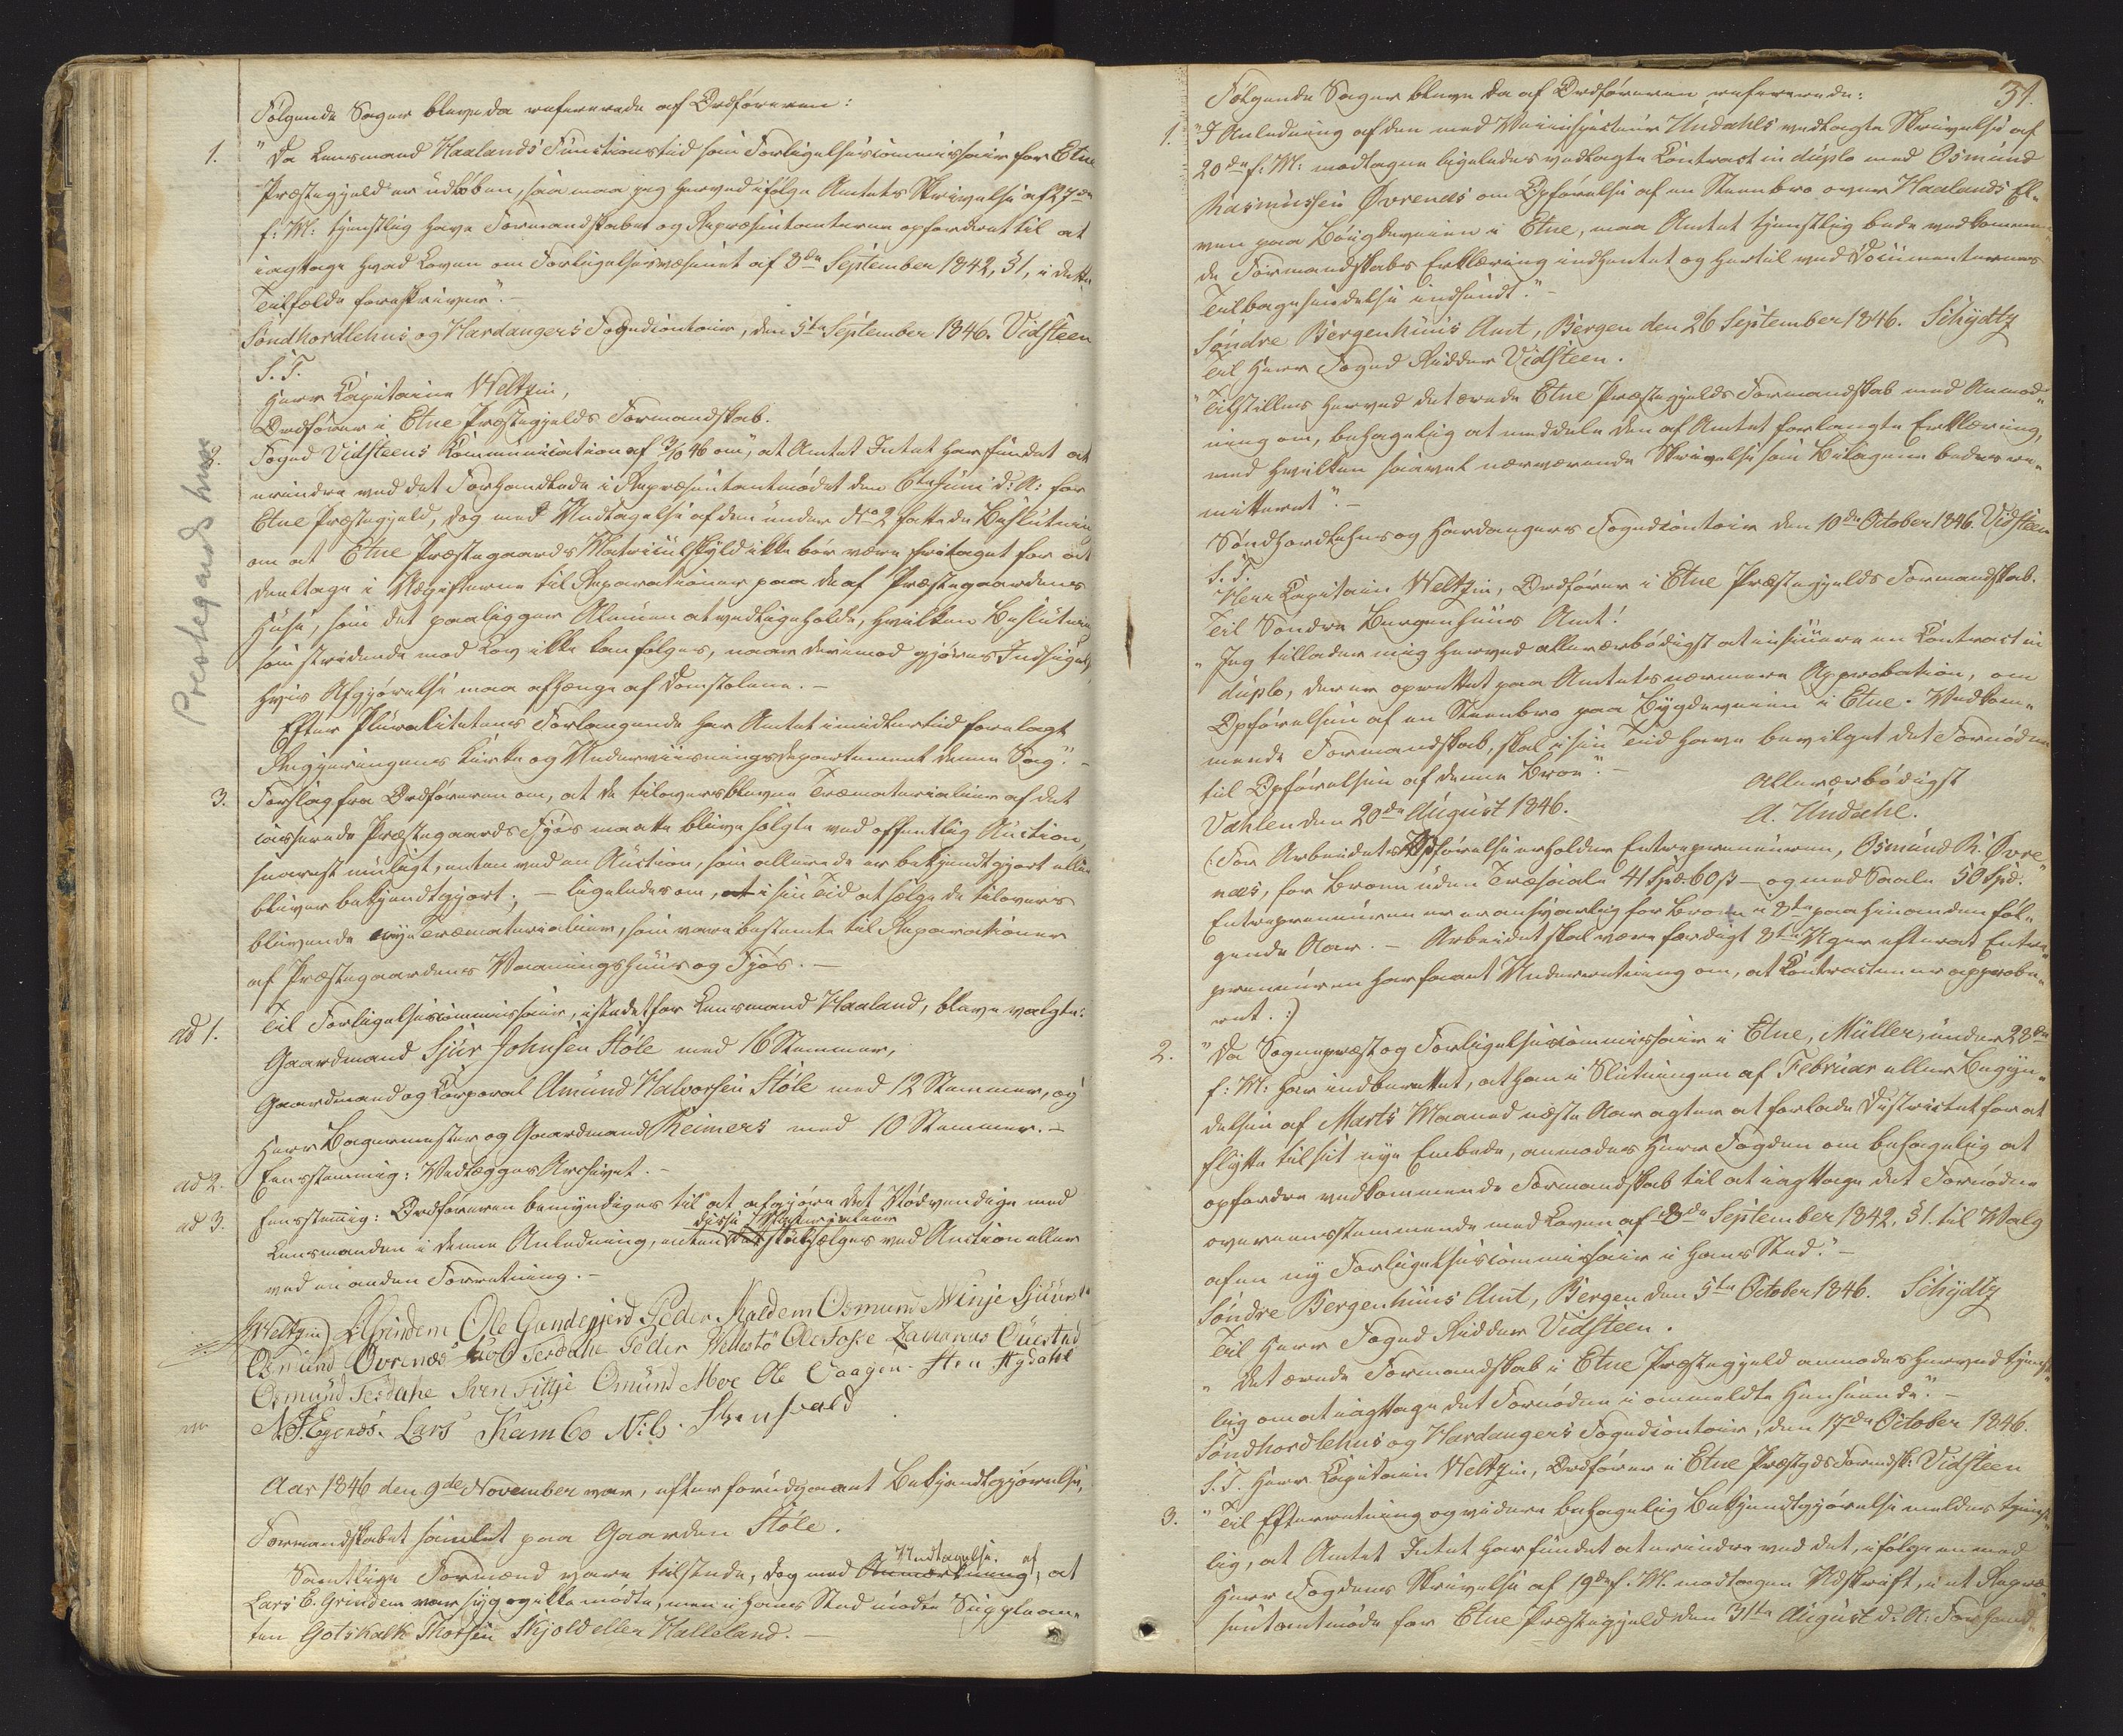 Følgende Sager bleve da refererede af Ordføreren:
1. "Da Lensmand Haalands Functionstid som Forligelsescommissair for Etne
Præstegjeld er udløben, saa maa jeg herved ifølge Amtets Skrivelse af 27de
f: M: tjenstlig have Formandskabet og Repræsentanterne opfordret til at
iagttage hvad Loven om Forligelsesvæsenet af 8de September 1842, §1, i dette
Tilfælde foreskriver". –
Søndhordlehns og Hardangers Fogedcontoir, den 5te September 1846. Vidsteen
S. T.
Herr Capitaine Weltzin,
Ordfører i Etne Præstegjelds Formandskab.
2. Foged Vidsteens Communication af 3/10 46 om, at Amtet Intet har fundet at
erindre ved det Forhandlede i Repræsentantmødet den 6te Juni d: A: for
Etne Præstegjeld, dog med Undtagelse af den under No 2 fattede Beslutning
om at Etne Præstegaards Matriculskyld ikke bør være fritaget for at
deeltage i Udgifterne til Reparationer paa de af Præstegaardens
Huse, som det paaligger Almuen at vedligeholde, hvilken Beslutning
som stridende mod Lov ikke kan følges, naar derimod gjøres Indsigelse,
hvis Afgjørelse maa afhænge af Domstolene. –
Prestegards huse
Efter Pluralitetens Forlangende har Amtet imidlertid forelagt
Regjeringens Kirke og Underviisningsdepartement denne Sag". –
3. Forslag fra Ordføreren om, at de tiloversblevne Træmaterialier af det
casserede Præstegaards Fjøs maatte blive solgte ved offentlig Auction,
snarest muligt, enten ved en Auction, som allerede er bekjendtgjort eller
bliver bekjendtgjort; – ligeledes om, at i sin Tid at sælge de tilovers
blivende nye Træmaterialier, som vare bestemte til Reparationer
af Præstegaardens Vaaningshuus og Fjøs. –
ad 1. Til Forligelsescommissair, istedetfor Lensmand Haaland, bleve valgte:
Gaardmand Sjur Johnsen Støle med 16 Stemmer,
Gaardmand og Corporal Amund Halvorsen Støle med 12 Stemmer, og
Herr Bagermester og Gaardmand Reimers med 10 Stemmer. –
ad 2. Eenstemmig: Vedlægges Archivet. –
ad 3. Eenstemmig: Ordføreren bemyndiges til at afgjøre det Nødvendige med
Lensmanden i denne Anledning, enten disse Materialier skal sælges ved Auction eller
ved en anden Forretning. –
Weltzin LGrindem Ole Gundegjerd Peder Kaldem Osmund Minje
Osmund Øvrenæs Terdahe Peder Ole Zacarias Qvestad
Osmund Terdahe Sven Fittje Omund Moe Ole Vaagen
N. J. Egenæs. Lars Kambo Nils
Aar 1846 den 9de November var, efter forudgaaet Bekjendtgjørelse,
Formandskabet samlet paa Gaarden Støle.
Samtlige Formænd vare tilstede, dog med Anmærkning Undtagelse af, at
Lars E. Grindem var syg og ikke mødte, men i hans Sted mødte Supplean-
ten Gotskalk Thorsen Skjold eller Halleland. –
31.
Følgende Sager bleve da af Ordføreren refererede:
1. "I Anledning af den med Veiinspecteur Undahls vedlagte Skrivelse af
20de f: M: modtagne ligeledes vedlagte Contract in duplo med Osmund
Rasmussen Øvrenæs om Opførelse af en Steenbro over Haalands El-
ven paa Bøigdeveien i Etne, maa Amtet tjenstlig bede vedkommen-
de Formandskabs Erklæring indhentet og hertil ved Documenternes
Tilbagesendelse indsendt." –
Søndre Bergenhuus Amt, Bergen den 26 September 1846. Schydtz
Til Herr Foged Ridder Vidsteen.
"Tilstilles herved det ærede Etne Præstegjelds Formandskab med Anmod-
ning om, behagelig at meddele den af Amtet forlangte Erklæring,
med hvilken saavel nærværende Skrivelse som Bilagene bedes re-
mitteret". –
Søndhordlehns og Hardangers Fogedcontoir den 10de October 1846. Vidsteen
S. T.
Herr Capitain Weltzin, Ordfører i Etne Præstegjelds Formandskab.
Til Søndre Bergenhuus Amt!
"Jeg tillader mig herved allerærbødigst at insinuere en Contract in
duplo, der er oprettet paa Amtets nærmere Approbation, om
Opførelsen af en Steenbro paa Bygdeveien i Etne. Vedkom-
mende Formandskab, skal i sin Tid have bevilget det Fornødne
til Opførelsen af denne Broe". –
Allerærbødigst
Vahlen den 20de August 1846. A. Undahl.
(: For Arbeidets Opførelse erholder Entrepreneuren, Osmund R. Øvre-
næs, for Broen uden Træsaale 41 Spd. 60 ß – og med Saale 50 Spd.
Entrepreneuren er ansvarlig for Broen i 8te paa hinanden føl-
gende Aar. – Arbeidet skal være færdigt 8te Uger efterat Entre-
preneuren har faaet Underretning om, at Contracten er approbe-
ret. :)
2. "Da Sognepræst og Forligelsescommissair i Etne, Müller, under 28de
f: M: har indberettet, at han i Slutningen af Februar eller Begyn-
delsen af Marts Maaned næste Aar agter at forlade Districtet for at
flytte til sit nye Embede, anmodes Herr Fogden om behagelig at
opfordre vedkommende Formandskab til at iagttage det Fornødne
overeensstemmende med Loven af 8de September 1842, §1. til Valg
af en ny Forligelsescommissair i hans Sted." –
Søndre Bergenhuus Amt, Bergen den 5te October 1846. Schydtz
Til Herr Foged Ridder Vidsteen.
"Det ærede Formandskab i Etne Præstegjeld anmodes herved tjenst-
lig om at iagttage det Fornødne i ommeldte Henseende." –
Søndhordlehns og Hardangers Fogedcontoir, den 17de October 1846.
S. T. Herr Capitain Weltzin, Ordfører i Etne Præstgds Formdsk: Vidsteen
3. "Til Efterretning og videre behagelig Bekjendtgjørelse meldes tjenst-
lig, at Amtet Intet har fundet at erindre ved det, ifølge en med
Herr Fogdens Skrivelse af 19de f. M. modtagen Udskrift, i et Repræ-
sentantmøde for Etne Præstegjeld den 31te August d. A. Forhand-